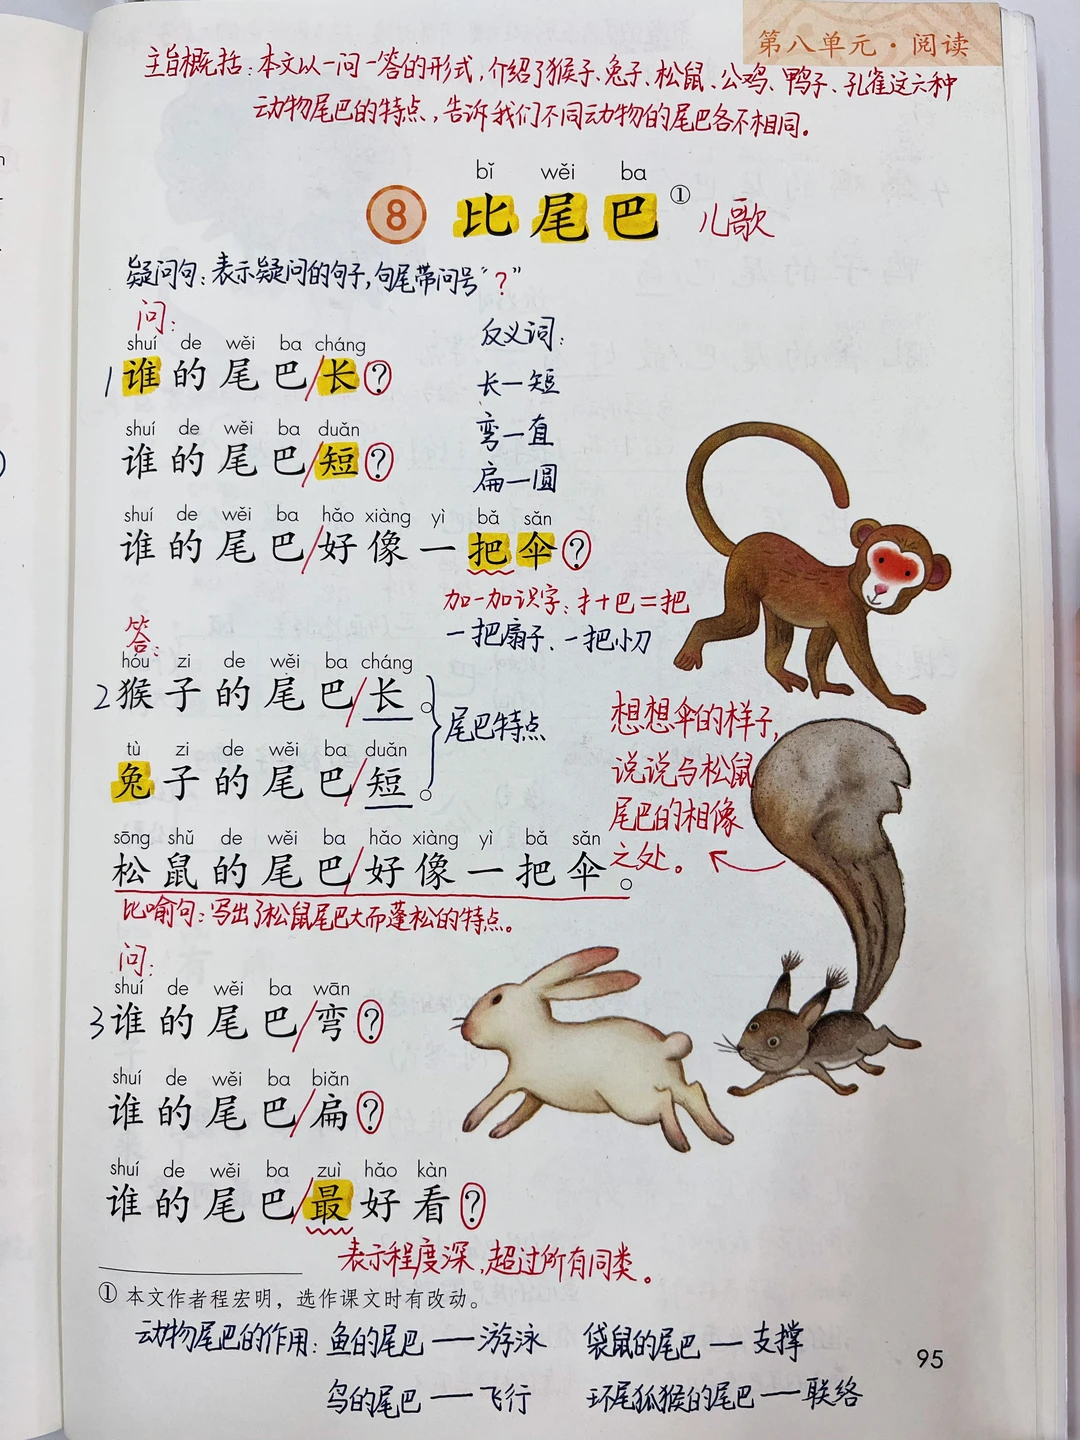 第八单元·阅读
主旨概括:本文以一问一答的形式,介绍了猴子、兔子、松鼠、公鸡、鸭子、孔雀这六种
动物尾巴的特点,告诉我们不同动物的尾巴各不相同。
bǐ wěi ba
8 比尾巴① 儿歌
疑问句:表示疑问的句子,句尾带问号“?”
问:
shuí de wěi ba cháng
1 谁的尾巴/长?
反义词:
长—短
弯—直
扁—圆
shuí de wěi ba duǎn
谁的尾巴/短?
shuí de wěi ba hǎo xiàng yì bǎ sǎn
谁的尾巴/好像一把伞?
加一加识字:扌+巴=把
一把扇子、一把小刀
答:
hóu zi de wěi ba cháng
2 猴子的尾巴/长。
tù zi de wěi ba duǎn
兔子的尾巴/短。
尾巴特点
想想伞的样子,
说说与松鼠
尾巴的相像
之处。
sōng shǔ de wěi ba hǎo xiàng yì bǎ sǎn
松鼠的尾巴/好像一把伞。
比喻句:写出了松鼠尾巴大而蓬松的特点。
问:
shuí de wěi ba wān
3 谁的尾巴/弯?
shuí de wěi ba biǎn
谁的尾巴/扁?
shuí de wěi ba zuì hǎo kàn
谁的尾巴/最好看?
表示程度深,超过所有同类。
① 本文作者程宏明,选作课文时有改动。
动物尾巴的作用:鱼的尾巴——游泳 袋鼠的尾巴—支撑
鸟的尾巴——飞行 环尾狐猴的尾巴——联络
95